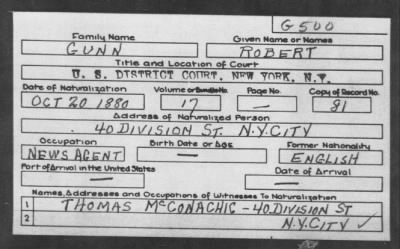 G500
Family Name Given Name or Names
GUNN ROBERT
Title and Location of Court
U. S. DISTRICT COURT, NEW YORK, N.Y.
Date of Naturalization Volume or Bundle No. Page No. Copy of Record No.
OCT 20 1880 17 — 81
Address of Naturalized Person
40 DIVISION ST. N.Y.CITY
Occupation Birth Date or Age Former Nationality
NEWS AGENT — ENGLISH
Port of Arrival in the United States Date of Arrival
— —
Names, Addresses and Occupations of Witnesses To Naturalization
1 THOMAS McCONACHIC - 40 DIVISION ST
2 N.Y.CITY ✓